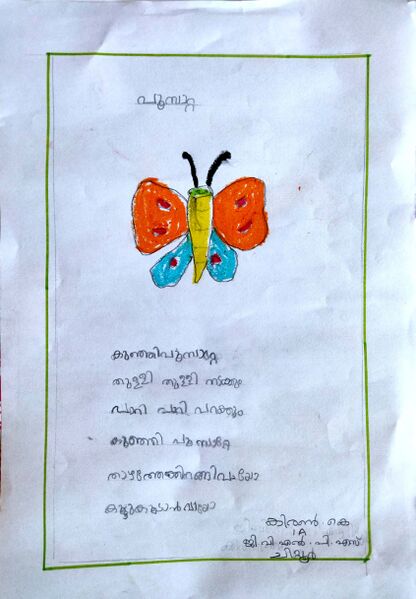 പൂമ്പാറ്റ
കുഞ്ഞിപൂമ്പാറ്റേ
തുള്ളി തുള്ളി നടക്കും
പാറി പാറി പറക്കും
കുഞ്ഞി പൂമ്പാറ്റേ
താഴത്തേക്കിറങ്ങിവായോ
കൂട്ടുകൂടാൻവായോ
കിരൺ. കെ
1A
ജി.വി.എൽ.പി.എസ്
ചിറ്റൂർ